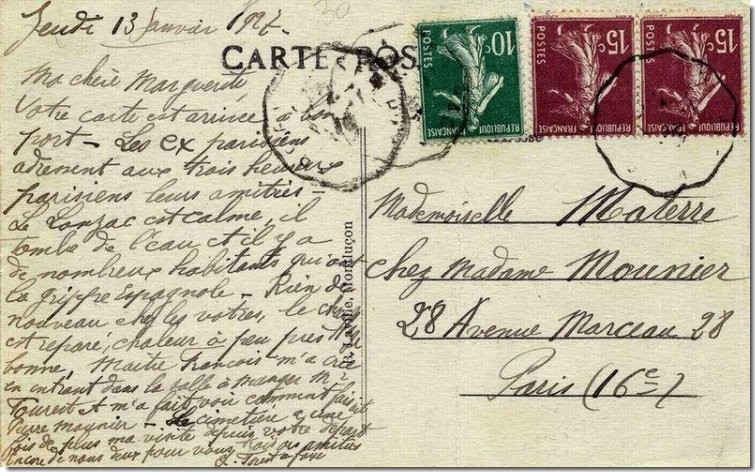 Jeudi 13 Janvier 192
30
CARTE POS
10c
POSTES
RÉPUBLIQUE FRANÇAISE
15c
POSTES
RÉPUBLIQUE FRANÇAISE
15c
POSTES
RÉPUBLIQUE FRANÇAISE
Ma chère Marguerite
Votre carte est arrivée à bon
port - Les ex parisiens
adressent aux trois heureux
parisiens leurs amitiés -
Le est calme, il
tombe de l'eau et il y a
de nombreux habitants qui ont
la grippe espagnole - Rien de
nouveau chez les votres, le
est réparé, chaleur à peu près
bonne, Maître François m'a
en entrant dans la salle à manger Mr
m'a fait voir comment
Pierre - Le cimetière a une
fois de plus ma visite depuis votre départ
Encore de nous deux pour vous amitiés
Montluçon
Mademoiselle Materre
chez Madame Mounier
28 Avenue Marceau 28
Paris (16e)